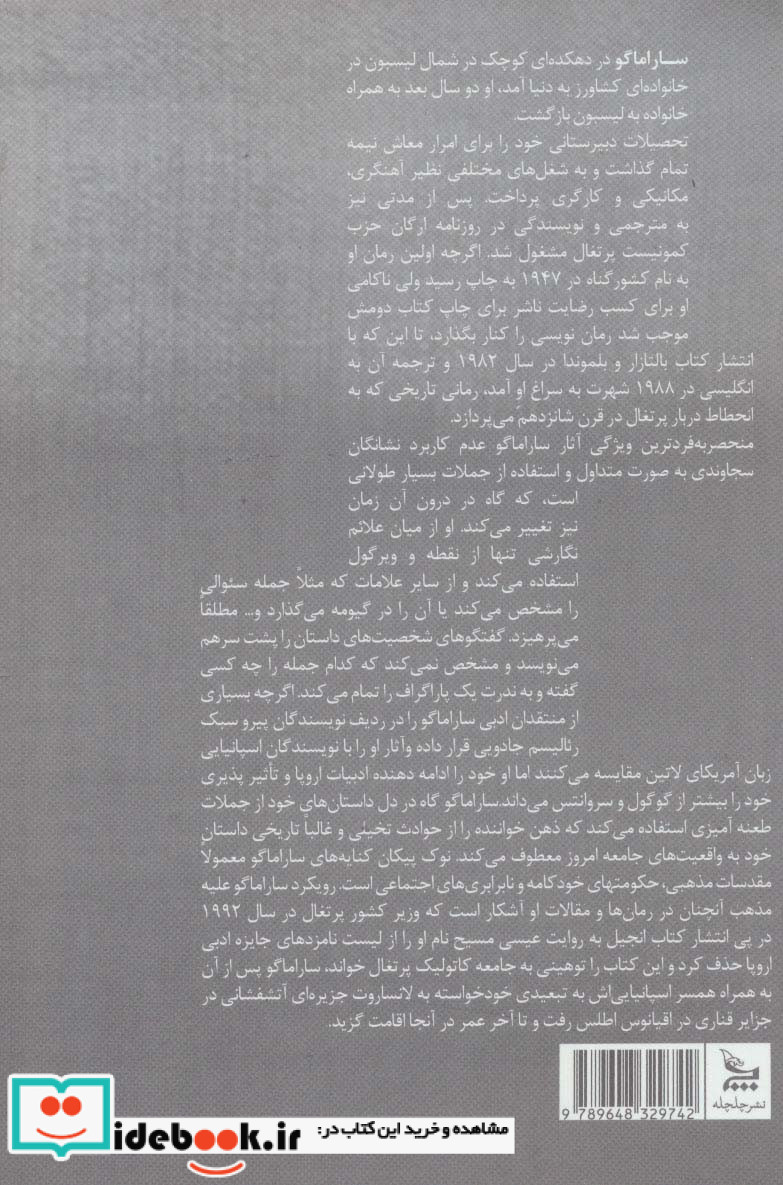 ساراماگو در دهکده‌ای کوچک در شمال لیسبون در
خانواده‌ای کشاورز به دنیا آمد، او دو سال بعد به همراه
خانواده به لیسبون بازگشت.
تحصیلات دبیرستانی خود را برای امرار معاش نیمه
تمام گذاشت و به شغل‌های مختلفی نظیر آهنگری،
مکانیکی و کارگری پرداخت. پس از مدتی نیز
به مترجمی و نویسندگی در روزنامه ارگان حزب
کمونیست پرتغال مشغول شد. اگرچه اولین رمان او
به نام کشورگناه در ۱۹۴۷ به چاپ رسید ولی ناکامی
او برای کسب رضایت ناشر برای چاپ کتاب دومش
موجب شد رمان نویسی را کنار بگذارد، تا این که با
انتشار کتاب بالتازار و بلموندا در سال ۱۹۸۲ و ترجمه آن به
انگلیسی در ۱۹۸۸ شهرت به سراغ او آمد، رمانی تاریخی که به
انحطاط دربار پرتغال در قرن شانزدهم می‌پردازد.
منحصربه‌فردترین ویژگی آثار ساراماگو عدم کاربرد نشانگان
سجاوندی به صورت متداول و استفاده از جملات بسیار طولانی
است، که گاه در درون آن زمان
نیز تغییر می‌کند. او از میان علائم
نگارشی تنها از نقطه و ویرگول
استفاده می‌کند و از سایر علامات که مثلاً جمله سئوالی
را مشخص می‌کند یا آن را در گیومه می‌گذارد و... مطلقاً
می‌پرهیزد. گفتگوهای شخصیت‌های داستان را پشت سرهم
می‌نویسد و مشخص نمی‌کند که کدام جمله را چه کسی
گفته و به ندرت یک پاراگراف را تمام می‌کند. اگرچه بسیاری
از منتقدان ادبی ساراماگو را در ردیف نویسندگان پیرو سبک
رئالیسم جادویی قرار داده وآثار او را با نویسندگان اسپانیایی
زبان آمریکای لاتین مقایسه می‌کنند اما او خود را ادامه دهنده ادبیات اروپا و تأثیر پذیری
خود را بیشتر از گوگول و سروانتس می‌داند.ساراماگو گاه در دل داستان‌های خود از جملات
طعنه آمیزی استفاده می‌کند که ذهن خواننده را از حوادث تخیلی و غالباً تاریخی داستان
خود به واقعیت‌های جامعه امروز معطوف می‌کند. نوک پیکان کنایه‌های ساراماگو معمولاً
مقدسات مذهبی، حکومتهای خودکامه و نابرابری‌های اجتماعی است. رویکرد ساراماگو علیه
مذهب آنچنان در رمان‌ها و مقالات او آشکار است که وزیر کشور پرتغال در سال ۱۹۹۲
در پی انتشار کتاب انجیل به روایت عیسی مسیح نام او را از لیست نامزدهای جایزه ادبی
اروپا حذف کرد و این کتاب را توهینی به جامعه کاتولیک پرتغال خواند، ساراماگو پس از آن
به همراه همسر اسپانیایی‌اش به تبعیدی خودخواسته به لانساروت جزیره‌ای آتشفشانی در
جزایر قناری در اقیانوس اطلس رفت و تا آخر عمر در آنجا اقامت گزید.
نشرچلچله
9 789648 329742
مشاهده و خرید این کتاب در:
idebook.ir